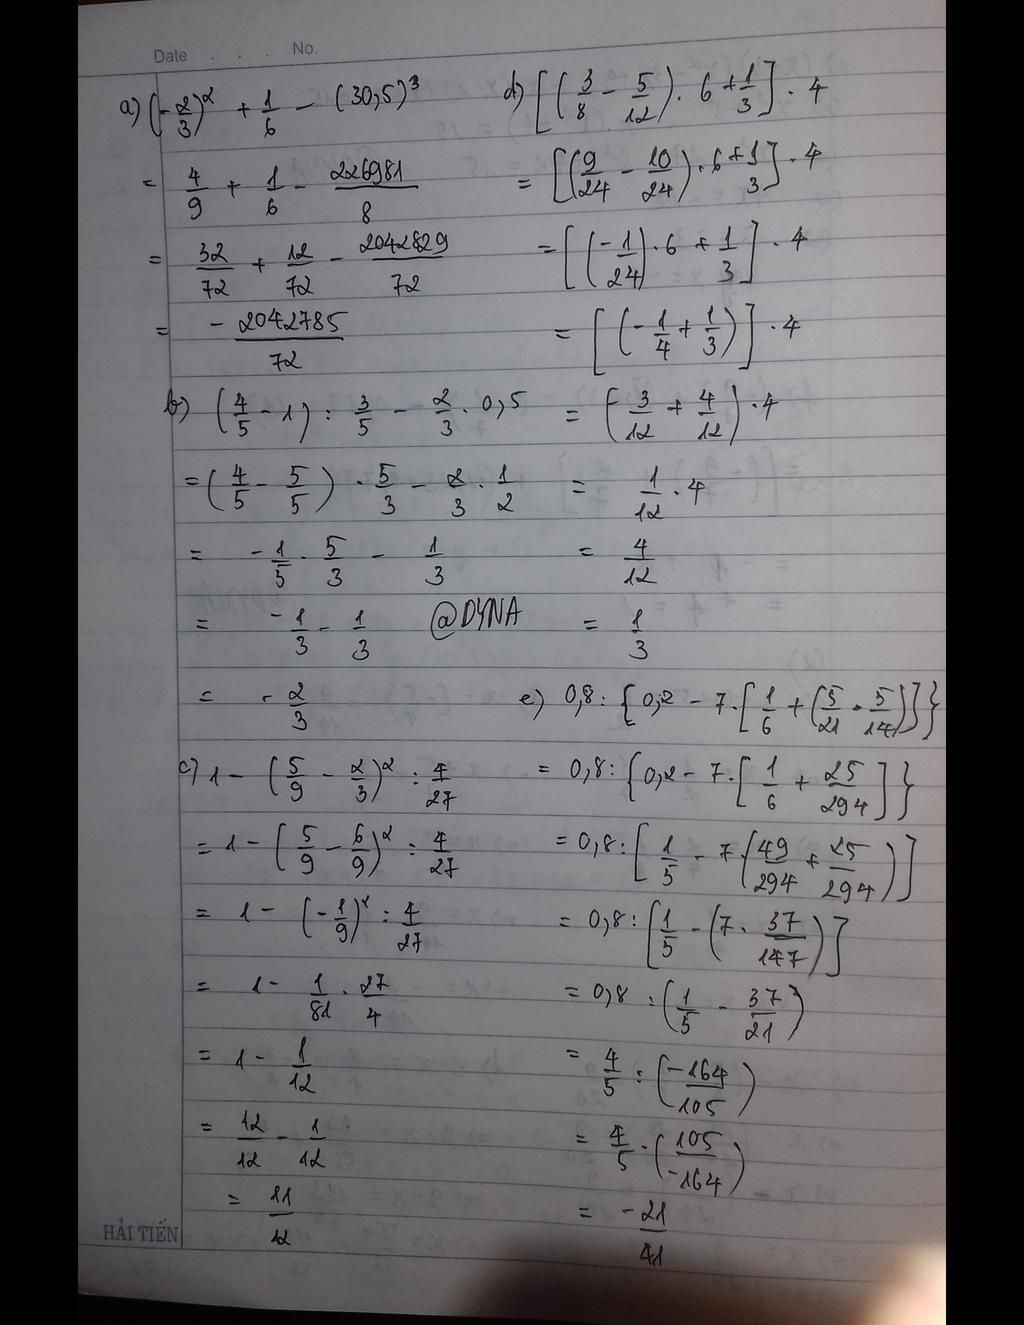 Date . . . No.
a) (-2/3)² + 1/6 - (30,5)³
= 4/9 + 1/6 - 226981/8
= 32/72 + 12/72 - 2042829/72
= -2042785/72
b) (4/5 - 1) : 3/5 - 2/3 . 0,5
= (4/5 - 5/5) . 5/3 - 2/3 . 1/2
= -1/5 . 5/3 - 1/3
= -1/3 - 1/3 @DYNA
= -2/3
c) 1 - (5/9 - 2/3)² : 4/27
= 1 - (5/9 - 6/9)² : 4/27
= 1 - (-1/9)² : 4/27
= 1 - 1/81 . 27/4
= 1 - 1/12
= 12/12 - 1/12
= 11/12
d) [(3/8 - 5/12) . 6 + 1/3] . 4
= [(9/24 - 10/24) . 6 + 1/3] . 4
= [(-1/24) . 6 + 1/3] . 4
= [(-1/4 + 1/3)] . 4
= (3/12 + 4/12) . 4
= 1/12 . 4
= 4/12
= 1/3
e) 0,8 : {0,2 - 7 . [1/6 + (5/21 . 5/14)]}
= 0,8 : {0,2 - 7 . [1/6 + 25/294]}
= 0,8 : [1/5 - 7 . (49/294 + 25/294)]
= 0,8 : [1/5 - (7 . 37/147)]
= 0,8 : (1/5 - 37/21)
= 4/5 : (-164/105)
= 4/5 . (105/-164)
= -21/41
HẢI TIẾN